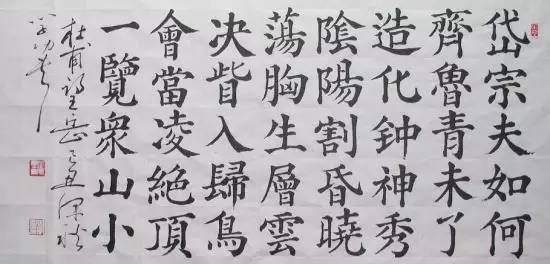 岱宗夫如何
齊魯青未了
造化钟神秀
陰陽割昏曉
蕩胸生層雲
决眥入歸鳥
會當凌絕頂
一覽衆山小
杜甫望岳己丑深秋